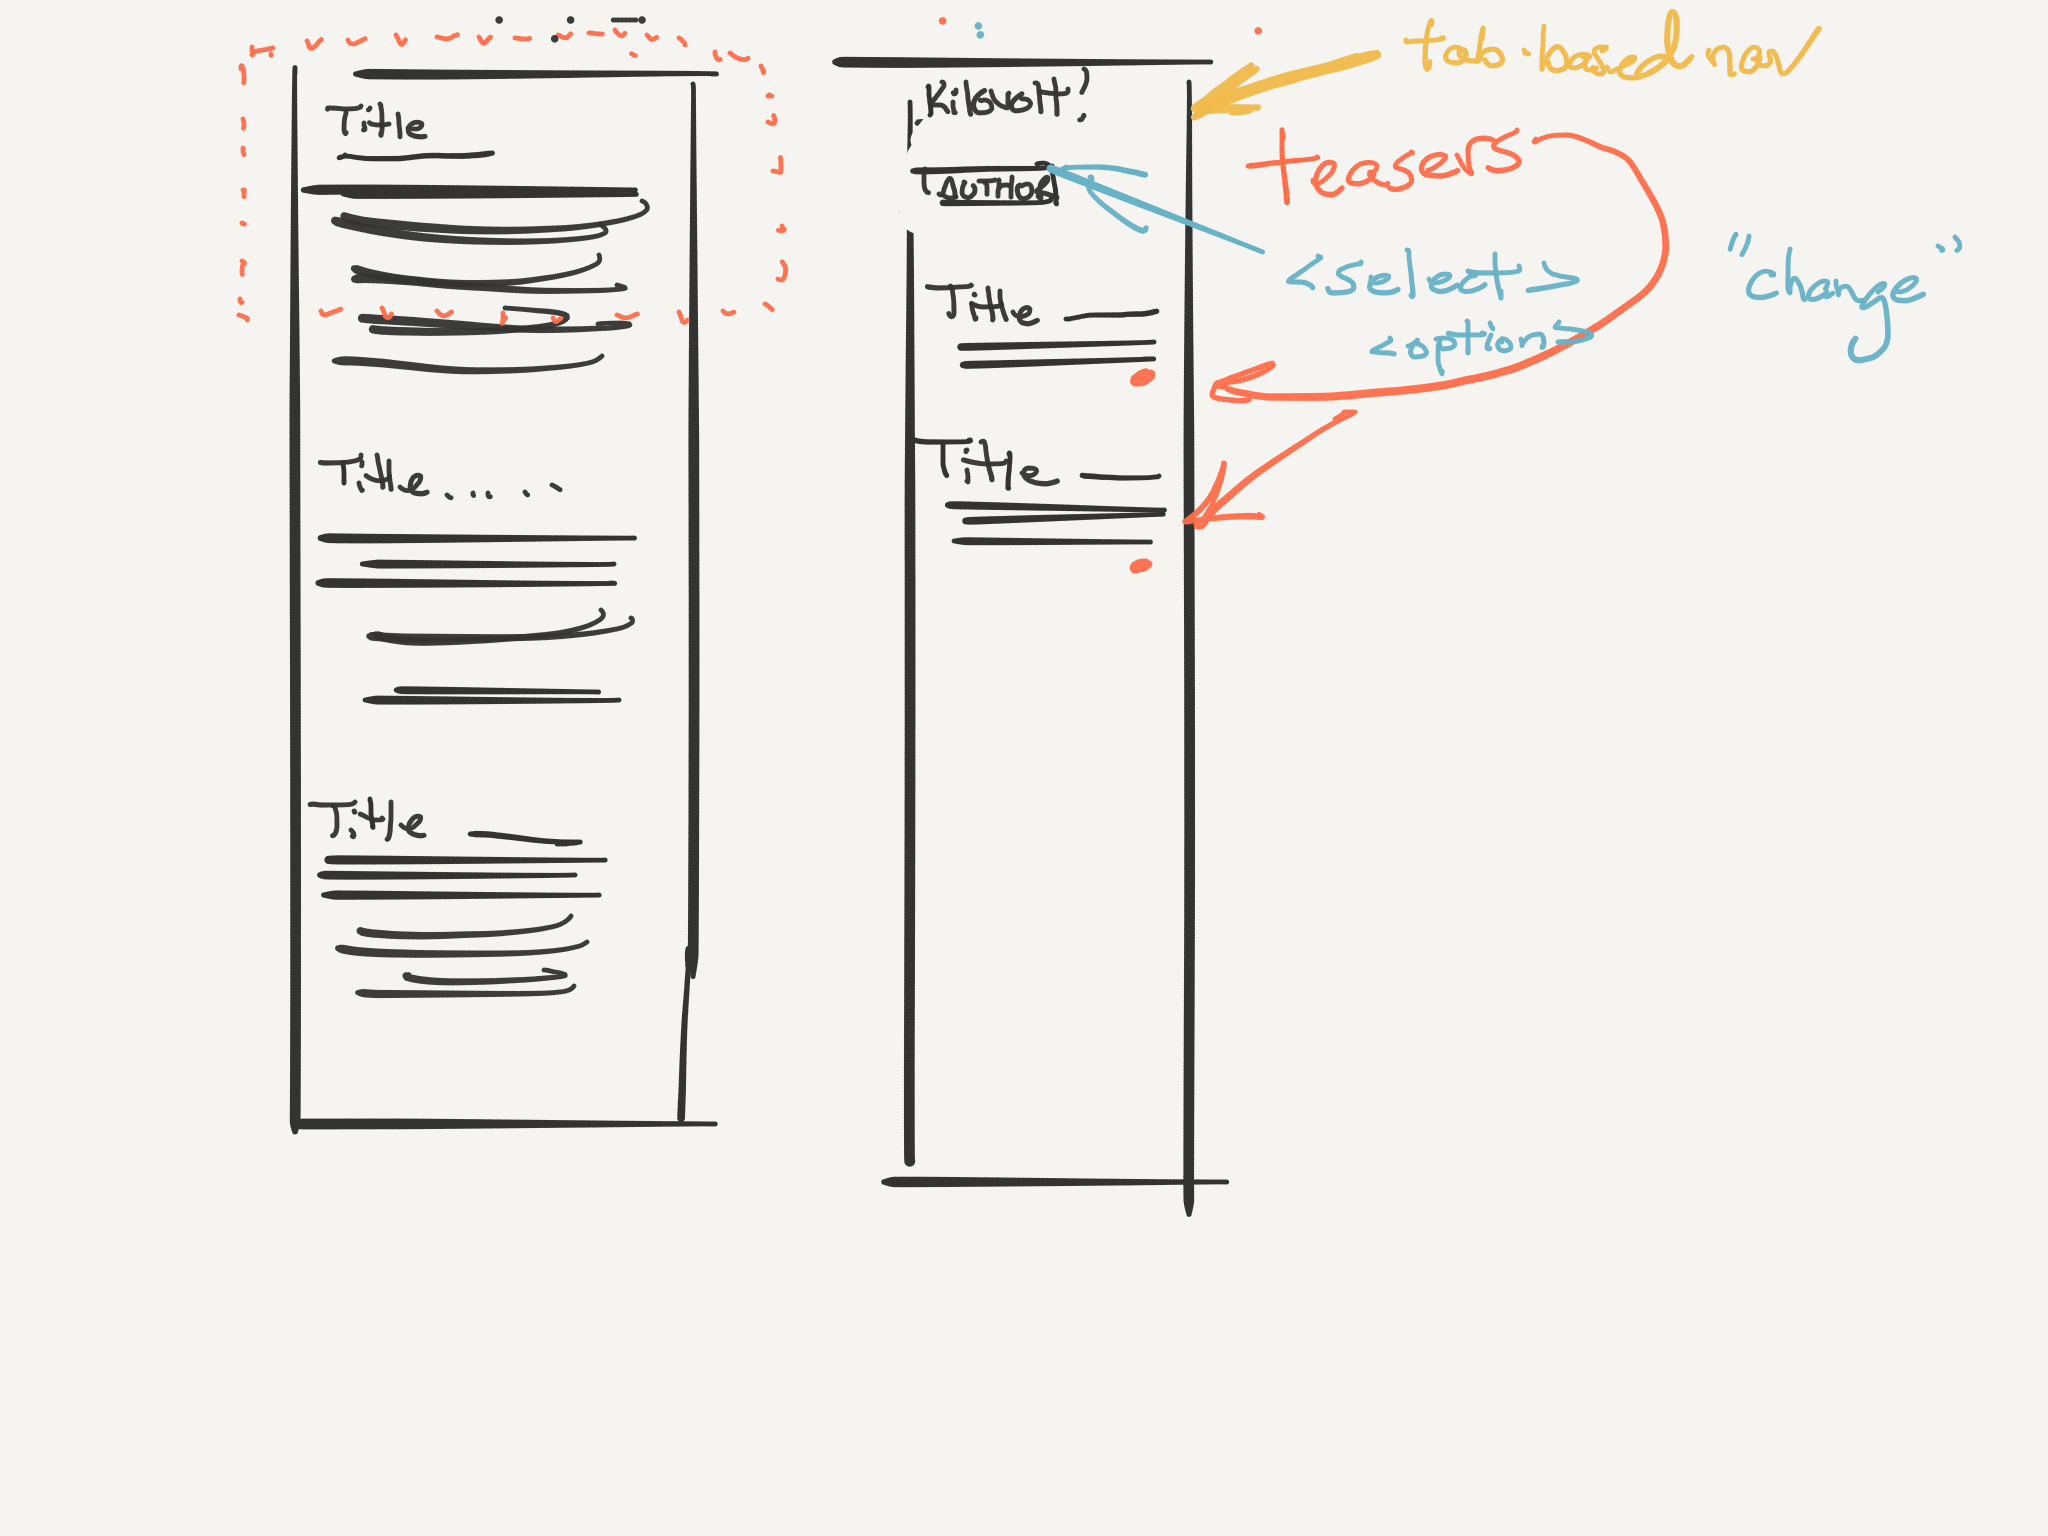 Title
Title.......
Title
Kilovolt!
AUTHOR
Title
Title
tab-based nav
teasers
<select>
<option>
"change"